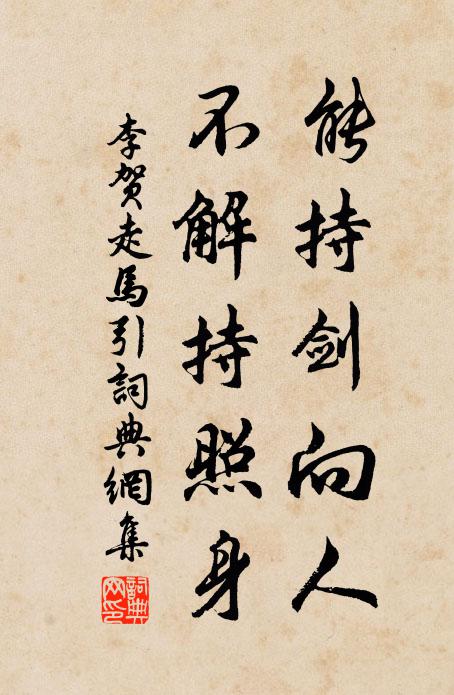 能持剑向人
不解持照身
李贺走馬引詞典網集
詞典网印